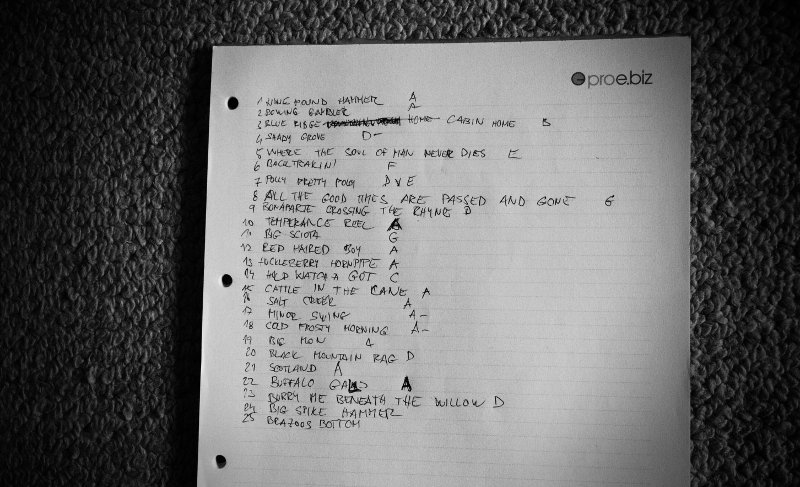 proe.biz
1 NINE POUND HAMMER A
2 ROWING GAMBLER A-
3 BLUE RIDGE HOME CABIN HOME B
4 SHADY GROVE D-
5 WHERE THE SOUL OF MAN NEVER DIES E
6 BACKTRAKIN' F
7 POLLY PRETTY POLLY D v E
8 ALL THE GOOD TIMES ARE PASSED AND GONE G
9 BONAPARTE CROSSING THE RHYNE D
10 TEMPERANCE REEL
11 BIG SCIOTA G
12 RED HAIRED BOY A
13 HUCKLEBERRY HORNPIPE A
14 C
15 CATTLE IN THE CANE A
16 SALT CREEK A
17 MINOR SWING A-
18 COLD FROSTY MORNING A-
19 BIG MON
20 BLACK MOUNTAIN RAG D
21 SCOTLAND A
22 BUFFALO GALS A
23 BURRY ME BENEATH THE WILLOW D
24 BIG SPIKE HAMMER
25 BRAZOOS BOTTOM